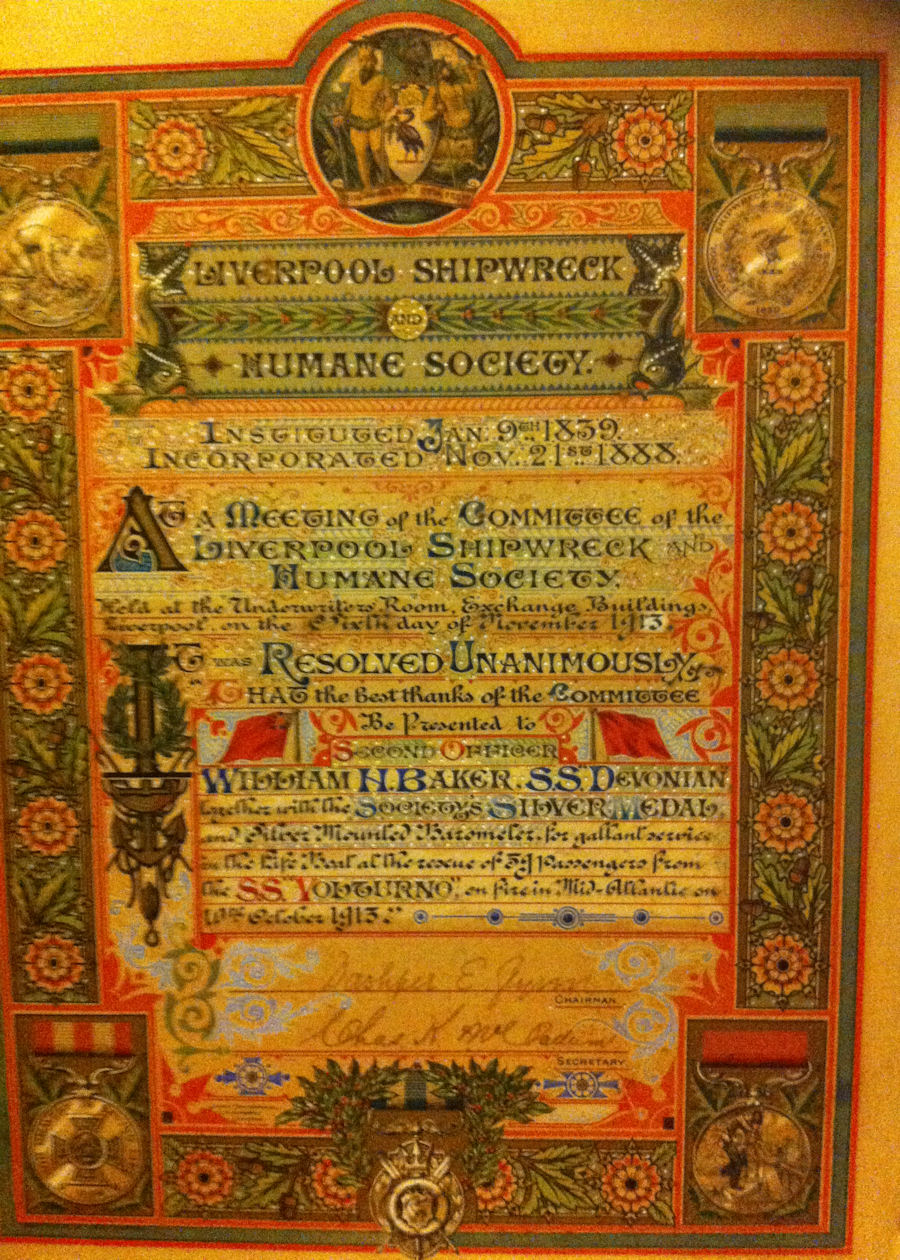 LIVERPOOL SHIPWRECK
AND
HUMANE SOCIETY.
INSTITUTED JAN. 9TH 1839.
INCORPORATED NOV. 21ST 1888.
AT A MEETING of the COMMITTEE of the
LIVERPOOL SHIPWRECK AND
HUMANE SOCIETY.
Held at the Underwriters Room, Exchange Buildings,
Liverpool on the Sixth day of November 1913.
IT WAS RESOLVED UNANIMOUSLY,
"THAT the Best thanks of the COMMITTEE
Be Presented to
SECOND OFFICER
WILLIAM H. BAKER, S.S. DEVONIAN
together with the SOCIETY'S SILVER MEDAL,
and Silver Mounted Barometer, for gallant service
in the Life Boat at the rescue of 59 Passengers from
the S.S. "VOLTURNO", on fire in Mid-Atlantic on
10th October 1913."
CHAIRMAN
Chas K
SECRETARY